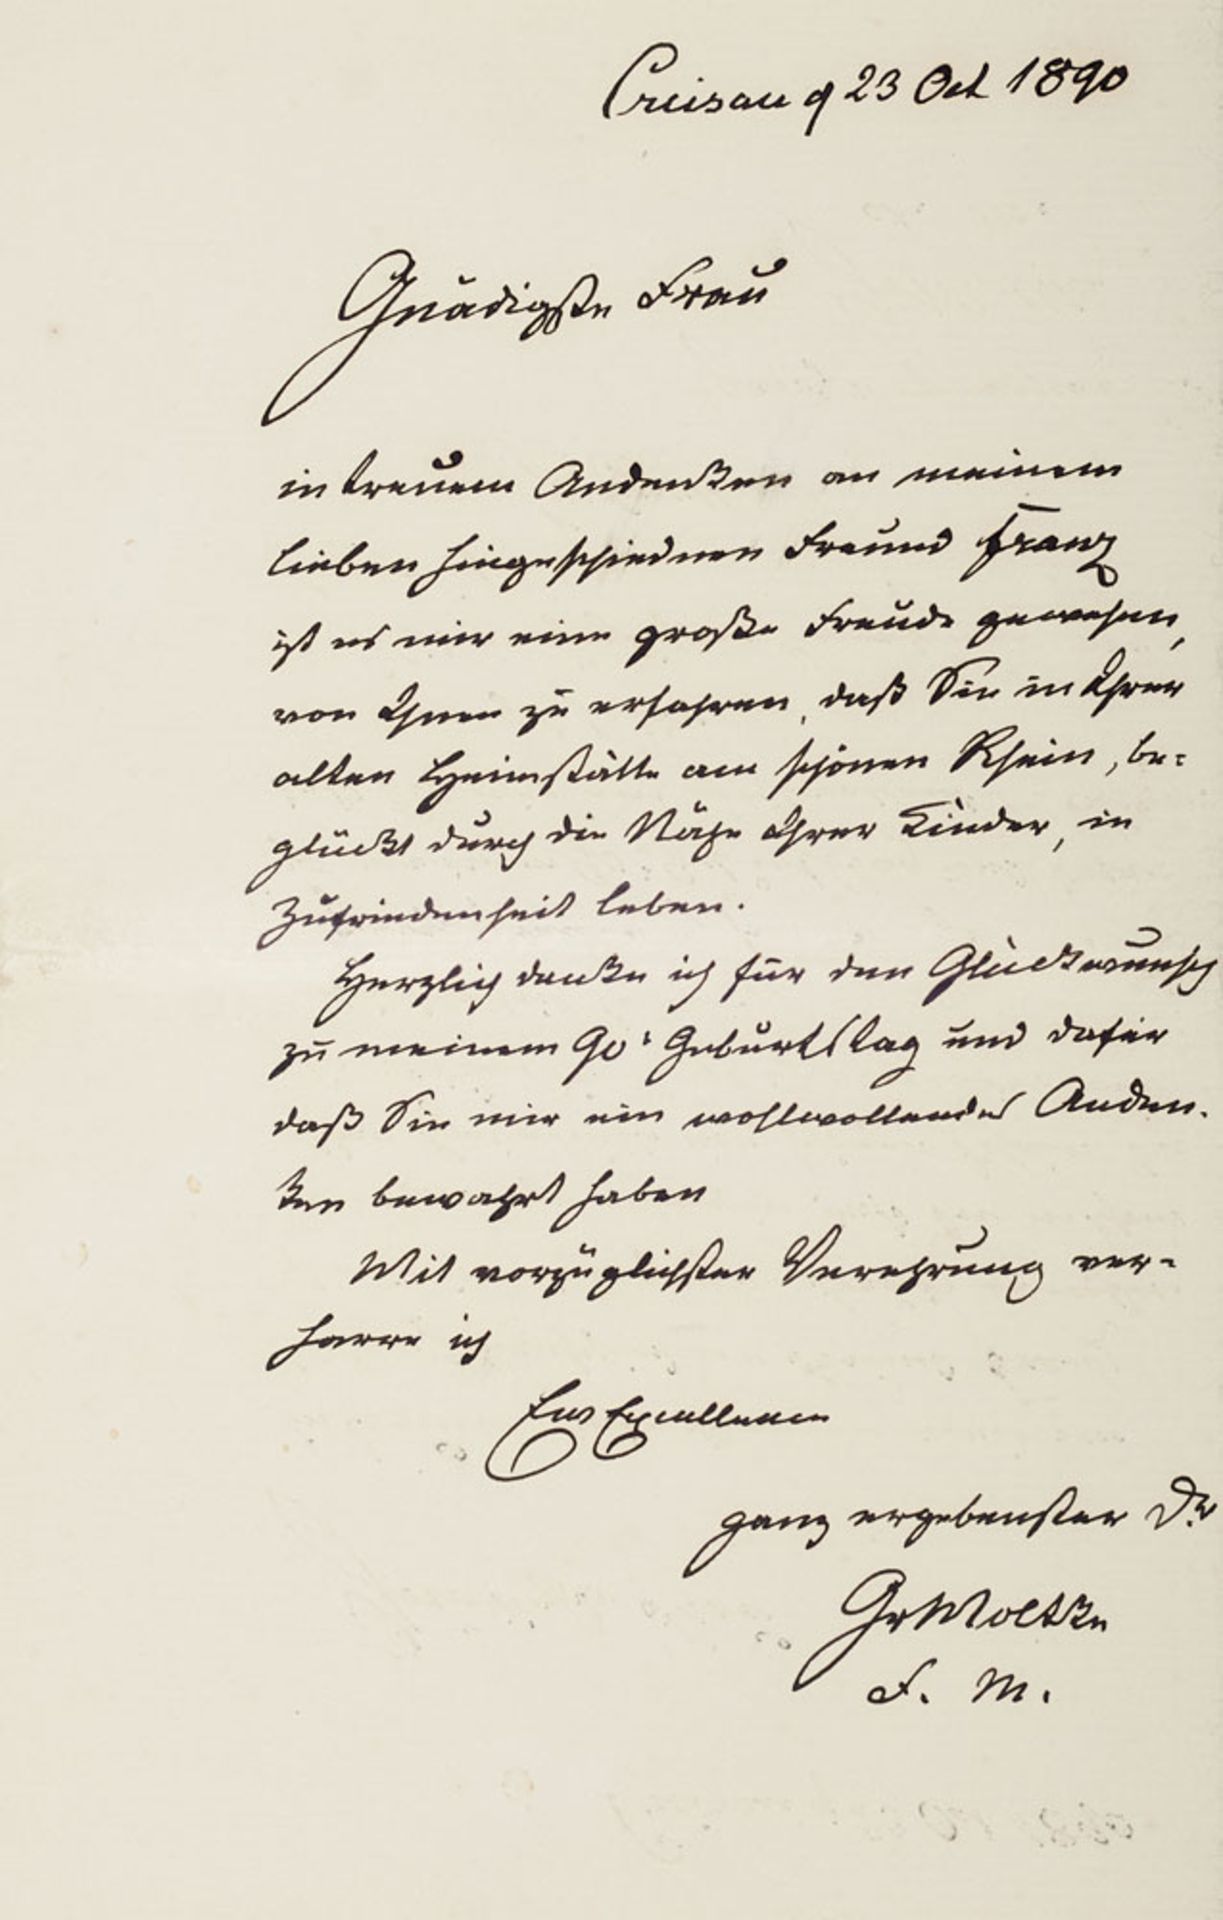 Creisau d 23 Oct 1890
Gnädigste Frau
in treuem Andenken an meinem
lieben hingeschiednen Freund Franz
ist es mir eine große Freude gewesen,
von Ihnen zu erfahren, daß Sie in Ihrer
alten Heimstätte am schönen Rhein, be-
glückt durch die Nähe Ihrer Kinder, in
Zufriedenheit leben.
Herzlich danke ich für den Glückwunsch
zu meinem 90t Geburtstag und dafür
daß Sie mir ein wohlwollendes Anden-
ken bewahrt haben
Mit vorzüglichster Verehrung ver-
harre ich
Euer Excellenz
ganz ergebenster Dr
Gr Moltke
F. M.